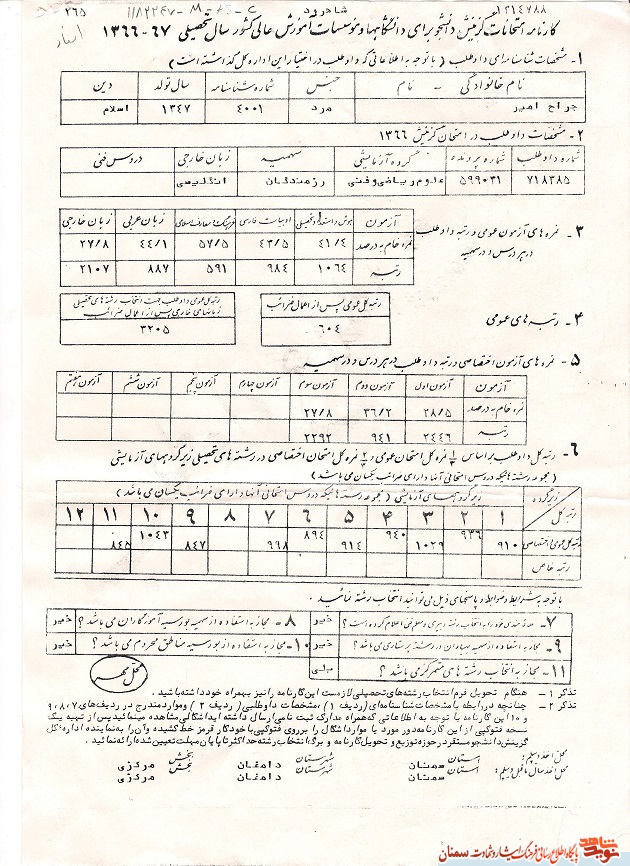 ۱۲۱۴۷۸۸
شاهرود
۲۶۵
کارنامه امتحانات گزینش دانشجو برای دانشگاهها و مؤسسات آموزش عالی کشور سال تحصیلی ۶۷-۱۳۶۶
۱- مشخصات شناسنامه‌ای داوطلب (با توجه به اطلاعاتی که داوطلب در اختیار این اداره کل گذاشته است)
نام خانوادگی - نام جنس شماره شناسنامه سال تولد دین
جراح امیر مرد ۴۰۰۱ ۱۳۴۷ اسلام
۲- مشخصات داوطلب در امتحان گزینش ۱۳۶۶
شماره داوطلب شماره پرونده گروه آزمایشی سهمیه زبان خارجی دروس فنی
۷۱۸۳۸۵ ۵۹۹۰۳۱ علوم ریاضی و فنی رزمندگان انگلیسی
۳- نمره های آزمون عمومی و رتبه داوطلب در هر درس و در سهمیه
آزمون هوش و استعداد تحصیلی ادبیات فارسی فرهنگ و معارف اسلامی زبان عربی زبان خارجی
نمره خام به درصد ۴۱/۴ ۴۳/۵ ۵۷/۵ ۴۴/۱ ۲۷/۸
رتبه ۱۰۶۴ ۹۸۴ ۵۹۱ ۸۸۷ ۲۱۰۷
۴- رتبه های عمومی
رتبه کل عمومی پس از اعمال ضرائب
۶۰۴
رتبه کل عمومی داوطلب جهت انتخاب رشته های تحصیلی زبانهای خارجی پس از اعمال ضرائب
۳۲۰۵
۵- نمره های آزمون اختصاصی و رتبه داوطلب در هر درس و در سهمیه
آزمون آزمون اول آزمون دوم آزمون سوم آزمون چهارم آزمون پنجم آزمون ششم آزمون هفتم
نمره خام به درصد ۲۸/۵ ۳۶/۲ ۲۷/۸
رتبه ۲۴۴۶ ۹۴۱ ۲۲۹۲
۶- رتبه کل داوطلب بر اساس نمره کل امتحان عمومی و نمره کل امتحان اختصاصی در رشته های تحصیلی زیرگروههای آزمایشی
(مجموعه رشته هائیکه دروس امتحانی آنها دارای ضرائب یکسان می باشد)
زیرگروه زیرگروههای آزمایشی (مجموعه رشته هائیکه دروس امتحانی آنها دارای ضرائب یکسان می باشد)
رتبه کل ۱ ۲ ۳ ۴ ۵ ۶ ۷ ۸ ۹ ۱۰ ۱۱ ۱۲
رتبه کل عمومی و اختصاصی ۹۱۰ ۹۳۶ ۱۰۲۹ ۹۴۰ ۹۱۴ ۸۹۴ ۹۶۸ ۸۴۷ ۱۰۴۳ ۸۴۵
رتبه خاص
با توجه به شرایط و ضوابط و پاسخهای ذیل می توانید انتخاب رشته نمائید.
۷- علاقمندی خود را به انتخاب رشته دبیری و معلم فنی اعلام کرده است؟ خیر
۸- مجاز به استفاده از سهمیه بورسیه آموزگاران می باشد؟ خیر
۹- مجاز به استفاده از سهمیه بهیاران در رشته پرستاری می باشد؟ خیر
۱۰- مجاز به استفاده از بورسیه مناطق محروم می باشد؟ خیر
۱۱- مجاز به انتخاب رشته های متمرکز می باشد؟ بلی
محل مهر
تذکر ۱- هنگام تحویل فرم انتخاب رشته‌های تحصیلی لازمست این کارنامه را نیز بهمراه خود داشته باشید.
تذکر ۲- چنانچه در رابطه با مشخصات شناسنامه‌ای (ردیف ۱)، مشخصات داوطلبی (ردیف ۲) و موارد مندرج در ردیف‌های ۹،۸،۷
و ۱۰ این کارنامه با توجه به اطلاعاتی که همراه مدارک ثبت نامی ارسال داشته اید اشکالی مشاهده مینمائید پس از تهیه یک
نسخه فتوکپی از این کارنامه دور مورد یا موارد اشکال را بر روی فتوکپی با خودکار قرمز خط کشیده و آن را به نماینده اداره کل
گزینش دانشجو مستقر در حوزه توزیع و تحویل کارنامه و برگ انتخاب رشته حداکثر تا پایان مهلت تعیین شده ارائه نمائید.
محل اخذ دیپلم: استان سمنان شهرستان دامغان بخش مرکزی
محل اخذ سال ماقبل دیپلم: استان سمنان شهرستان دامغان بخش مرکزی
نوید شاهد
پایگاه اطلاع رسانی فرهنگ ایثار و شهادت سمنان